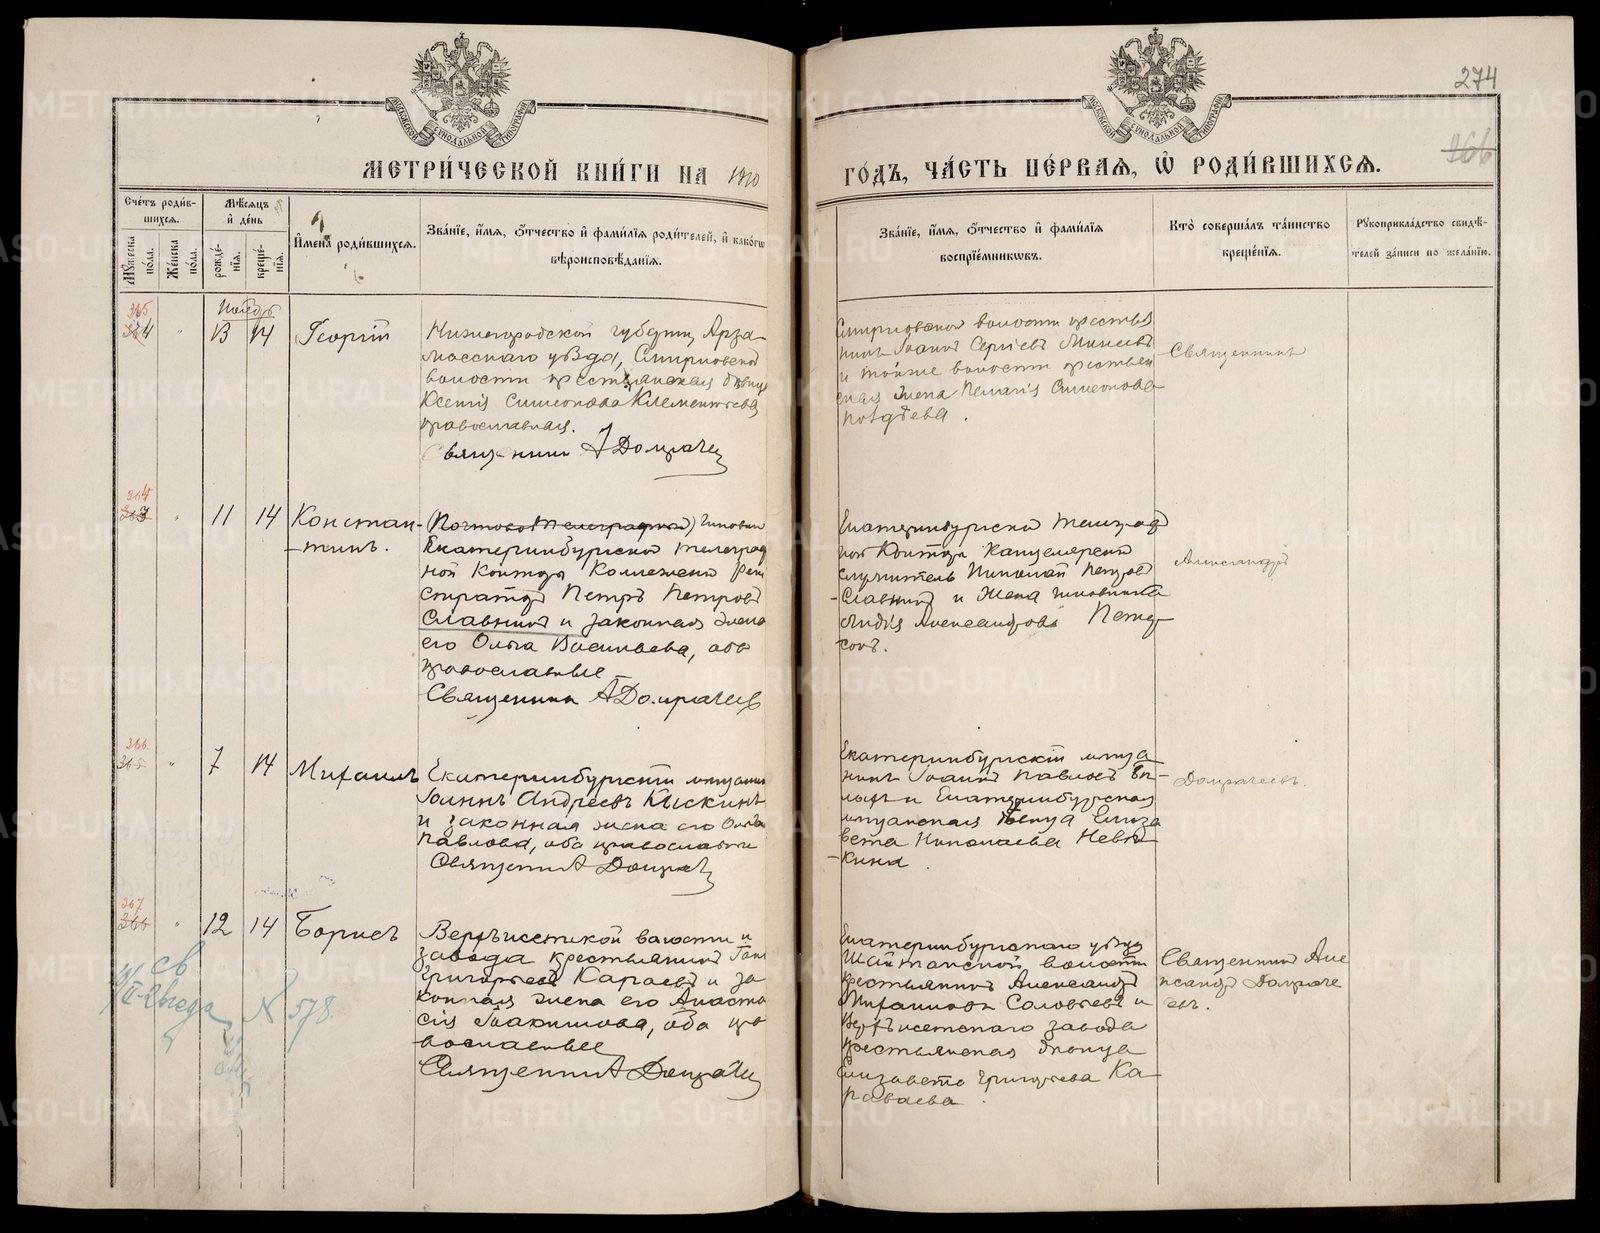 274
366
МОСКОВСКОЙ СѴНОДАЛЬНОЙ ТИПОГРАФІИ
МОСКОВСКОЙ СѴНОДАЛЬНОЙ ТИПОГРАФІИ
МЕТРИ́ЧЕСКОЙ КНИ́ГИ НА 1910
ГО́ДЪ, ЧА́СТЬ ПЕ́РВАѦ, Ѽ РОДИ́ВШИХСѦ.
Сче́тъ роди́в-
шихсѧ.
Мѹ́жеска по́ла.
Же́нска по́ла.
Мѣ́сѧцъ
и҆ де́нь
рожде́-
нїѧ.
креще́-
нїѧ.
И҆мена̀ роди́вшихсѧ.
Зва́нїе, и҆́мѧ, ѻ҆́тчество и҆ фами́лїѧ роди́телей, и҆ како́гѡ
вѣроисповѣ́данїѧ.
Зва́нїе, и҆́мѧ, ѻ҆́тчество и҆ фами́лїѧ
воспрїе́мникѡвъ.
Кто̀ соверша́лъ та́инство
креще́нїѧ.
Рѹкоприкла́дство свидѣ́-
телей за́писи по жела́нїю.
Ноябрь
365
364
13 14 Георгій
Нижегородской губерніи, Арза-
масскаго уѣзда, Смирновской
волости крестьянская дѣвица
Ксенія Симеонова Клементьева,
православная.
Священникъ А Домрачеев
Смирновской волости крестья
нинъ Іоаннъ Сергіевъ Минеевъ
и тойже волости крестьян
ская жена Пелагія Симеонова
Поздѣева.
Священникъ
364
11 14 Констан-
-тинъ.
(Почтово-Телеграфный) чиновни
Екатеринбургской телеграф
ной Конторы Коллежскій реги
страторъ Петръ Петровъ
Славнинъ и законная жена
его Ольга Васильева, оба
православные
Священникъ А Домрачеевъ
Екатеринбургской телеграф
ной Конторы Канцелярскій
служитель Николай Петровъ
-Славнинъ и жена чиновника
Лидія Александрова Петер-
сонъ.
Александръ
366
365
7 14 Михаилъ
Екатеринбургскій мѣщанинъ
Іоаннъ Андреевъ Кыскинъ
и законная жена его Ольга
Павлова, оба православные
Священникъ А Домрачеев
Екатеринбургскій мѣща
нинъ Іоаннъ Павловъ
и Екатеринбургская
мѣщанская дѣвица Елиза
вета Николаева Невь-
-кина.
Домрачеевъ.
367
366
12 14 Борисъ
Верхъисетской волости и
завода крестьянинъ
Григорьевъ Караваевъ и за
конная жена его Анаста
сія Іоакимова, оба пра
вославные
Священникъ А Домрачеев
Екатеринбургскаго уѣзда
Шайтанской волости
крестьянинъ Александръ
Михаиловъ Соловьевъ и
Верхъисетскаго завода
крестьянская дѣвица
Елизавета Григорьева Ка-
раваева.
Священникъ Але
ксандръ Домраче
евъ.
св
№ 578.